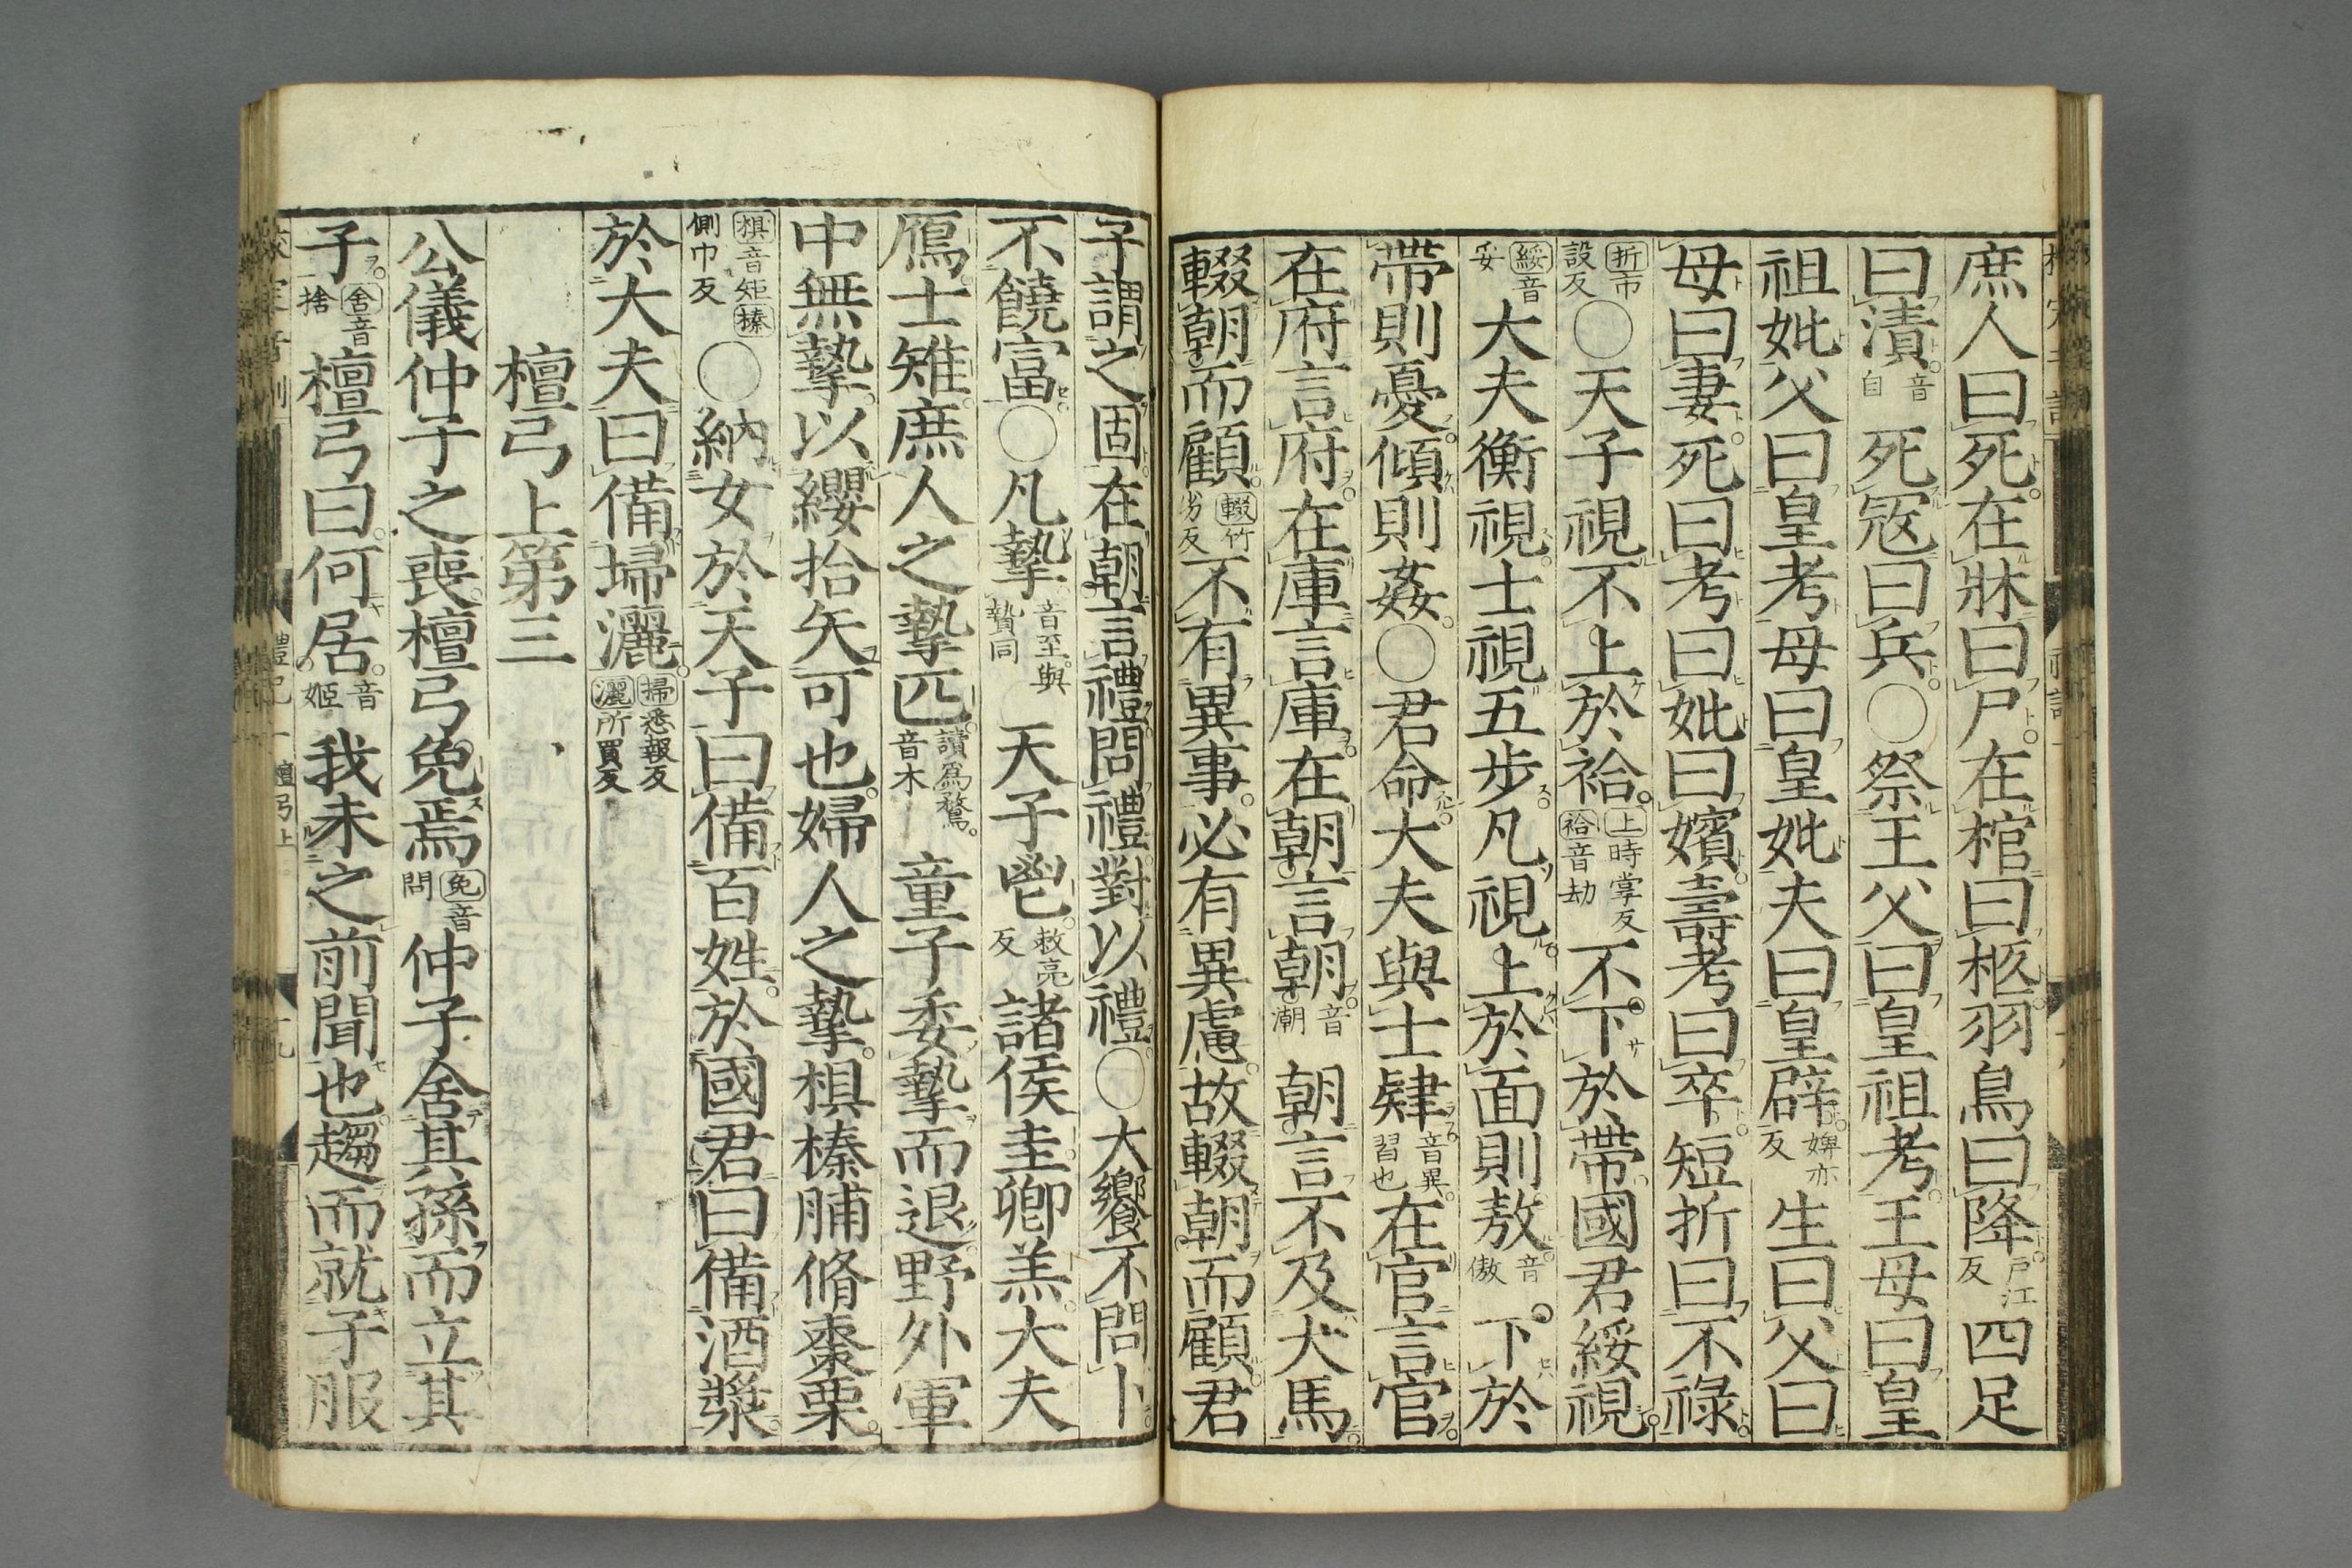 庶人曰死在牀曰尸在棺曰柩羽鳥曰降戸江反四足
曰漬音自死冦曰兵○祭王父曰皇祖考王母曰皇
祖妣父曰皇考母曰皇妣夫曰皇辟婢亦反生曰父曰
母曰妻死曰考曰妣曰嬪壽考曰卒短折曰不祿
折市設反○天子視不上於袷上時掌反袷音劫不下於帶國君綏視
綏音妥大夫衡視士視五步凡視上於面則敖音傲下於
帶則憂傾則姦○君命大夫與士肄音異習也在官言官
在府言府在庫言庫在朝言朝音潮朝言不及犬馬
輟朝而顧輟竹劣反不有異事必有異慮故輟朝而顧君
子謂之固在朝言禮問禮對以禮○大饗不問卜
不饒富○凡摯音至與贄同天子鬯敕亮反諸侯圭卿羔大夫
鴈士雉庶人之摯匹讀爲鶩音木童子委摯而退野外軍
中無摯以纓拾矢可也婦人之摯椇榛脯脩棗栗
椇音矩榛側巾反○納女於天子曰備百姓於國君曰備酒漿
於大夫曰備埽灑掃悉報反灑所買反
檀弓上第三
公儀仲子之喪檀弓免焉免音問仲子舍其孫而立其
子舍音捨檀弓曰何居音姬我未之前聞也趨而就子服
禮記一
檀弓上
十九